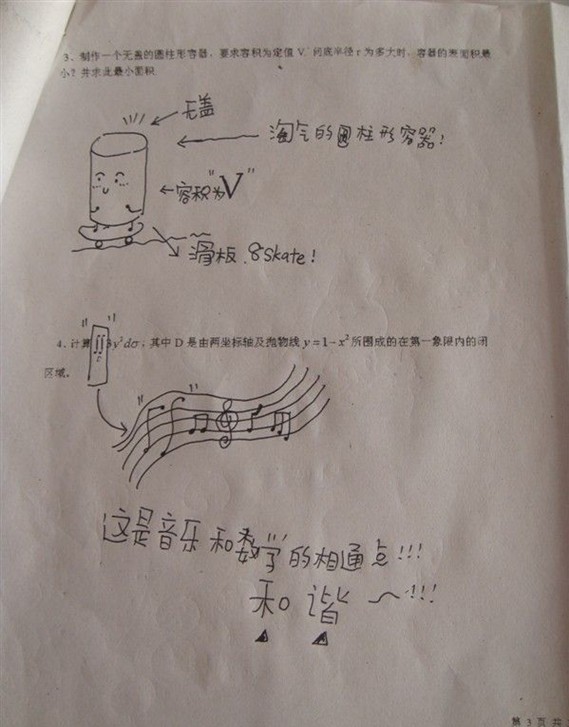 3、制作一个无盖的圆柱形容器，要求容积为定值 V. 问底半径 r 为多大时，容器的表面积最
小？并求此最小面积
无盖
淘气的圆柱形容器！
容积为"V"
滑板. 8 Skate!
4、计算∬y²dσ，其中 D 是由两坐标轴及抛物线 y=1-x² 所围成的在第一象限内的闭
区域。
这是音乐和数学的相通点!!!
和谐~!!!
第 3 页 共